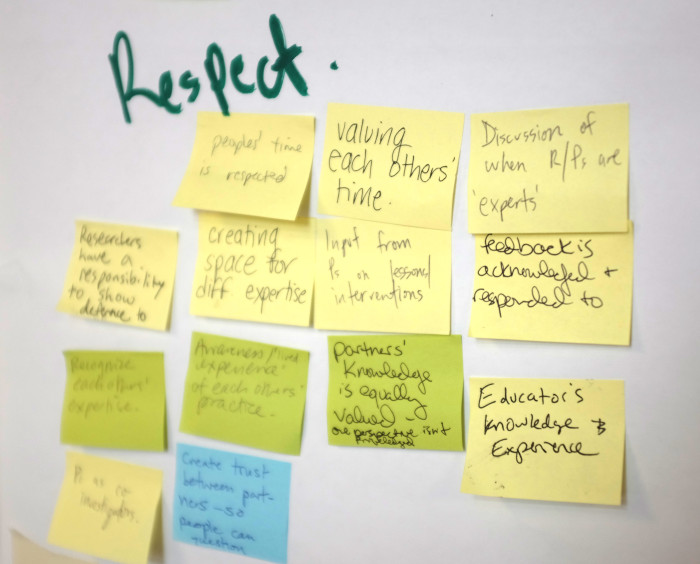 Respect.
peoples' time
is respected
valuing
each others'
time.
Discussion of
when R/Ps are
'experts'
Researchers
have a
responsibility
to show
deference to
creating
space for
diff expertise
Input from
Ps on lessons/
interventions
feedback is
acknowledged +
responded to
Recognize
each others'
expertise.
Awareness/lived
experience
of each others'
practice.
Partners'
knowledge
is equally
valued -
one perspective isn't
privileged
Educator's
knowledge &
Experience
Ps as co-
investigators.
Create trust
between part-
ners - so
people can
question